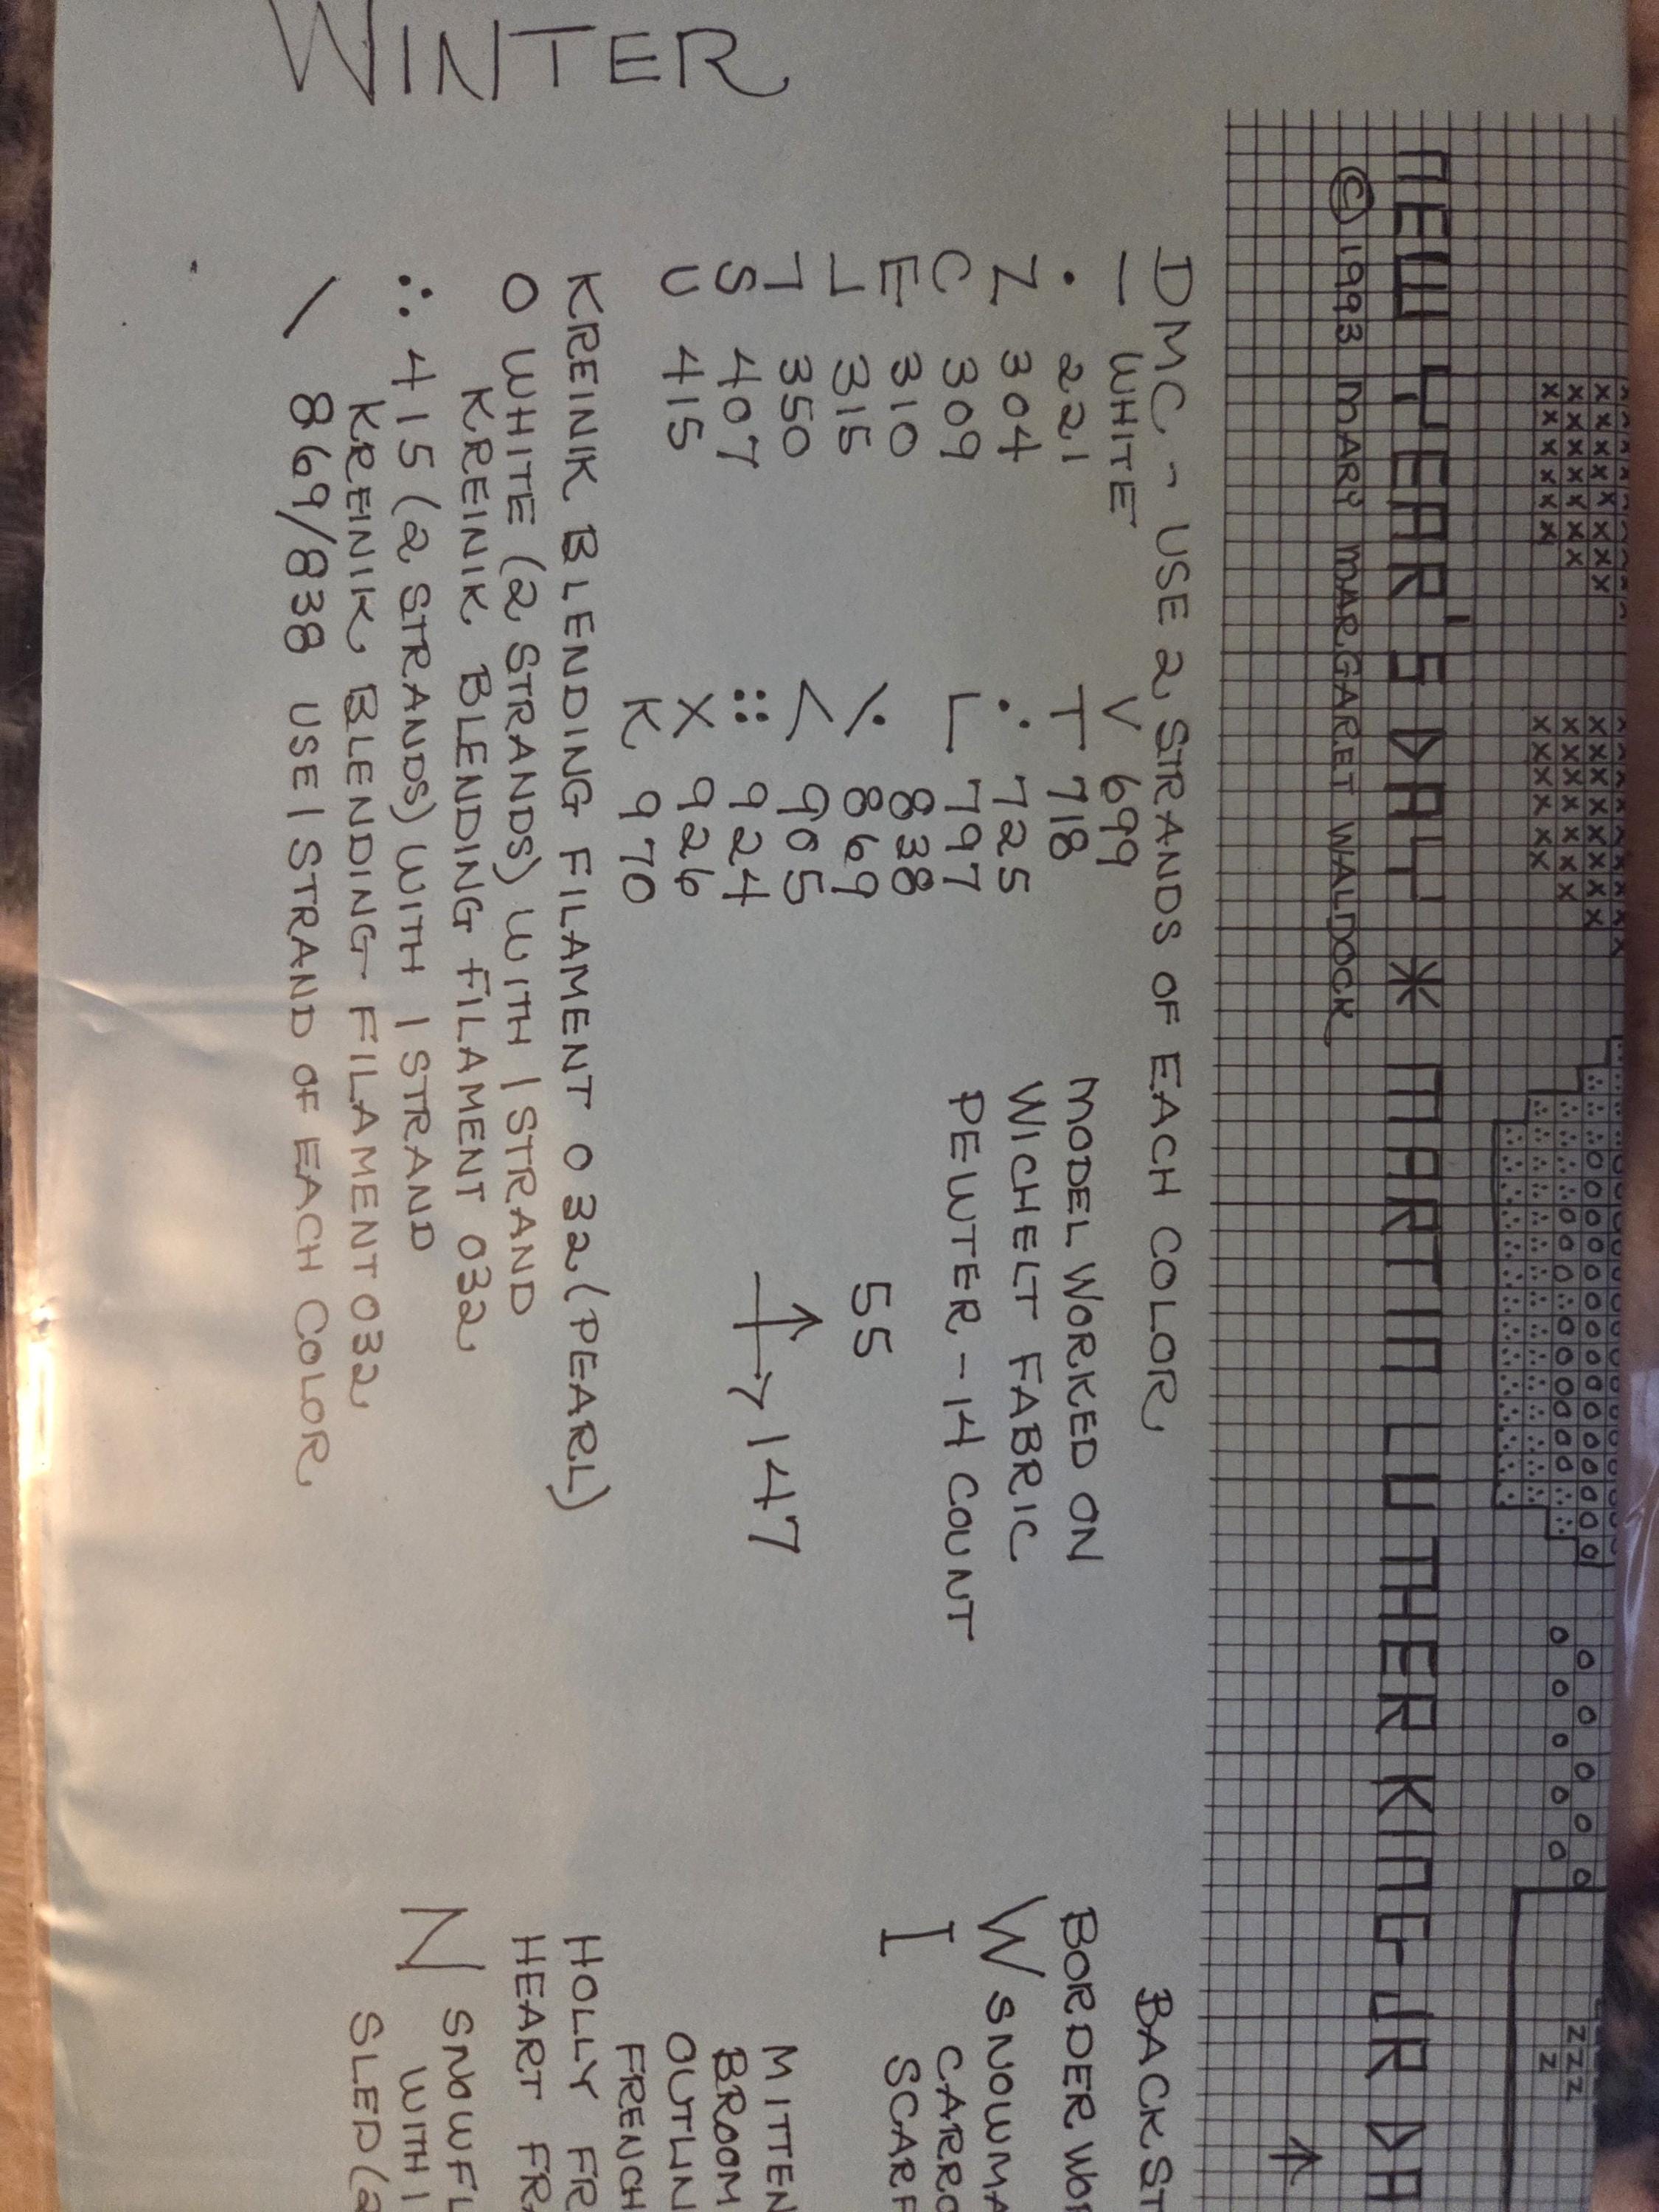 NEW YEAR'S DAY * MARTIN LUTHER KING JR DA
© 1993 MARY MARGARET WALDOCK
DMC - USE 2 STRANDS OF EACH COLOR
— WHITE
• 221
Z 304
C 309
E 310
⅃ 315
ㄱ 350
S 407
U 415
V 699
T 718
⋰ 725
L 797
838
⁒ 869
∠ 905
:: 924
X 926
K 970
MODEL WORKED ON
WICHELT FABRIC
PEWTER - 14 COUNT
55
147
KREINIK BLENDING FILAMENT 032 (PEARL)
O WHITE (2 STRANDS) WITH 1 STRAND
KREINIK BLENDING FILAMENT 032
∴ 415 (2 STRANDS) WITH 1 STRAND
KREINIK BLENDING FILAMENT 032
\ 869/838 USE 1 STRAND OF EACH COLOR
BACKST
BORDER WOR
W SNOWMA
I CARRO
SCARF
MITTEN
BROOM
OUTLIN
FRENCH
HOLLY FR
HEART FRA
N SNOWFL
WITH 1
SLED (2
WINTER